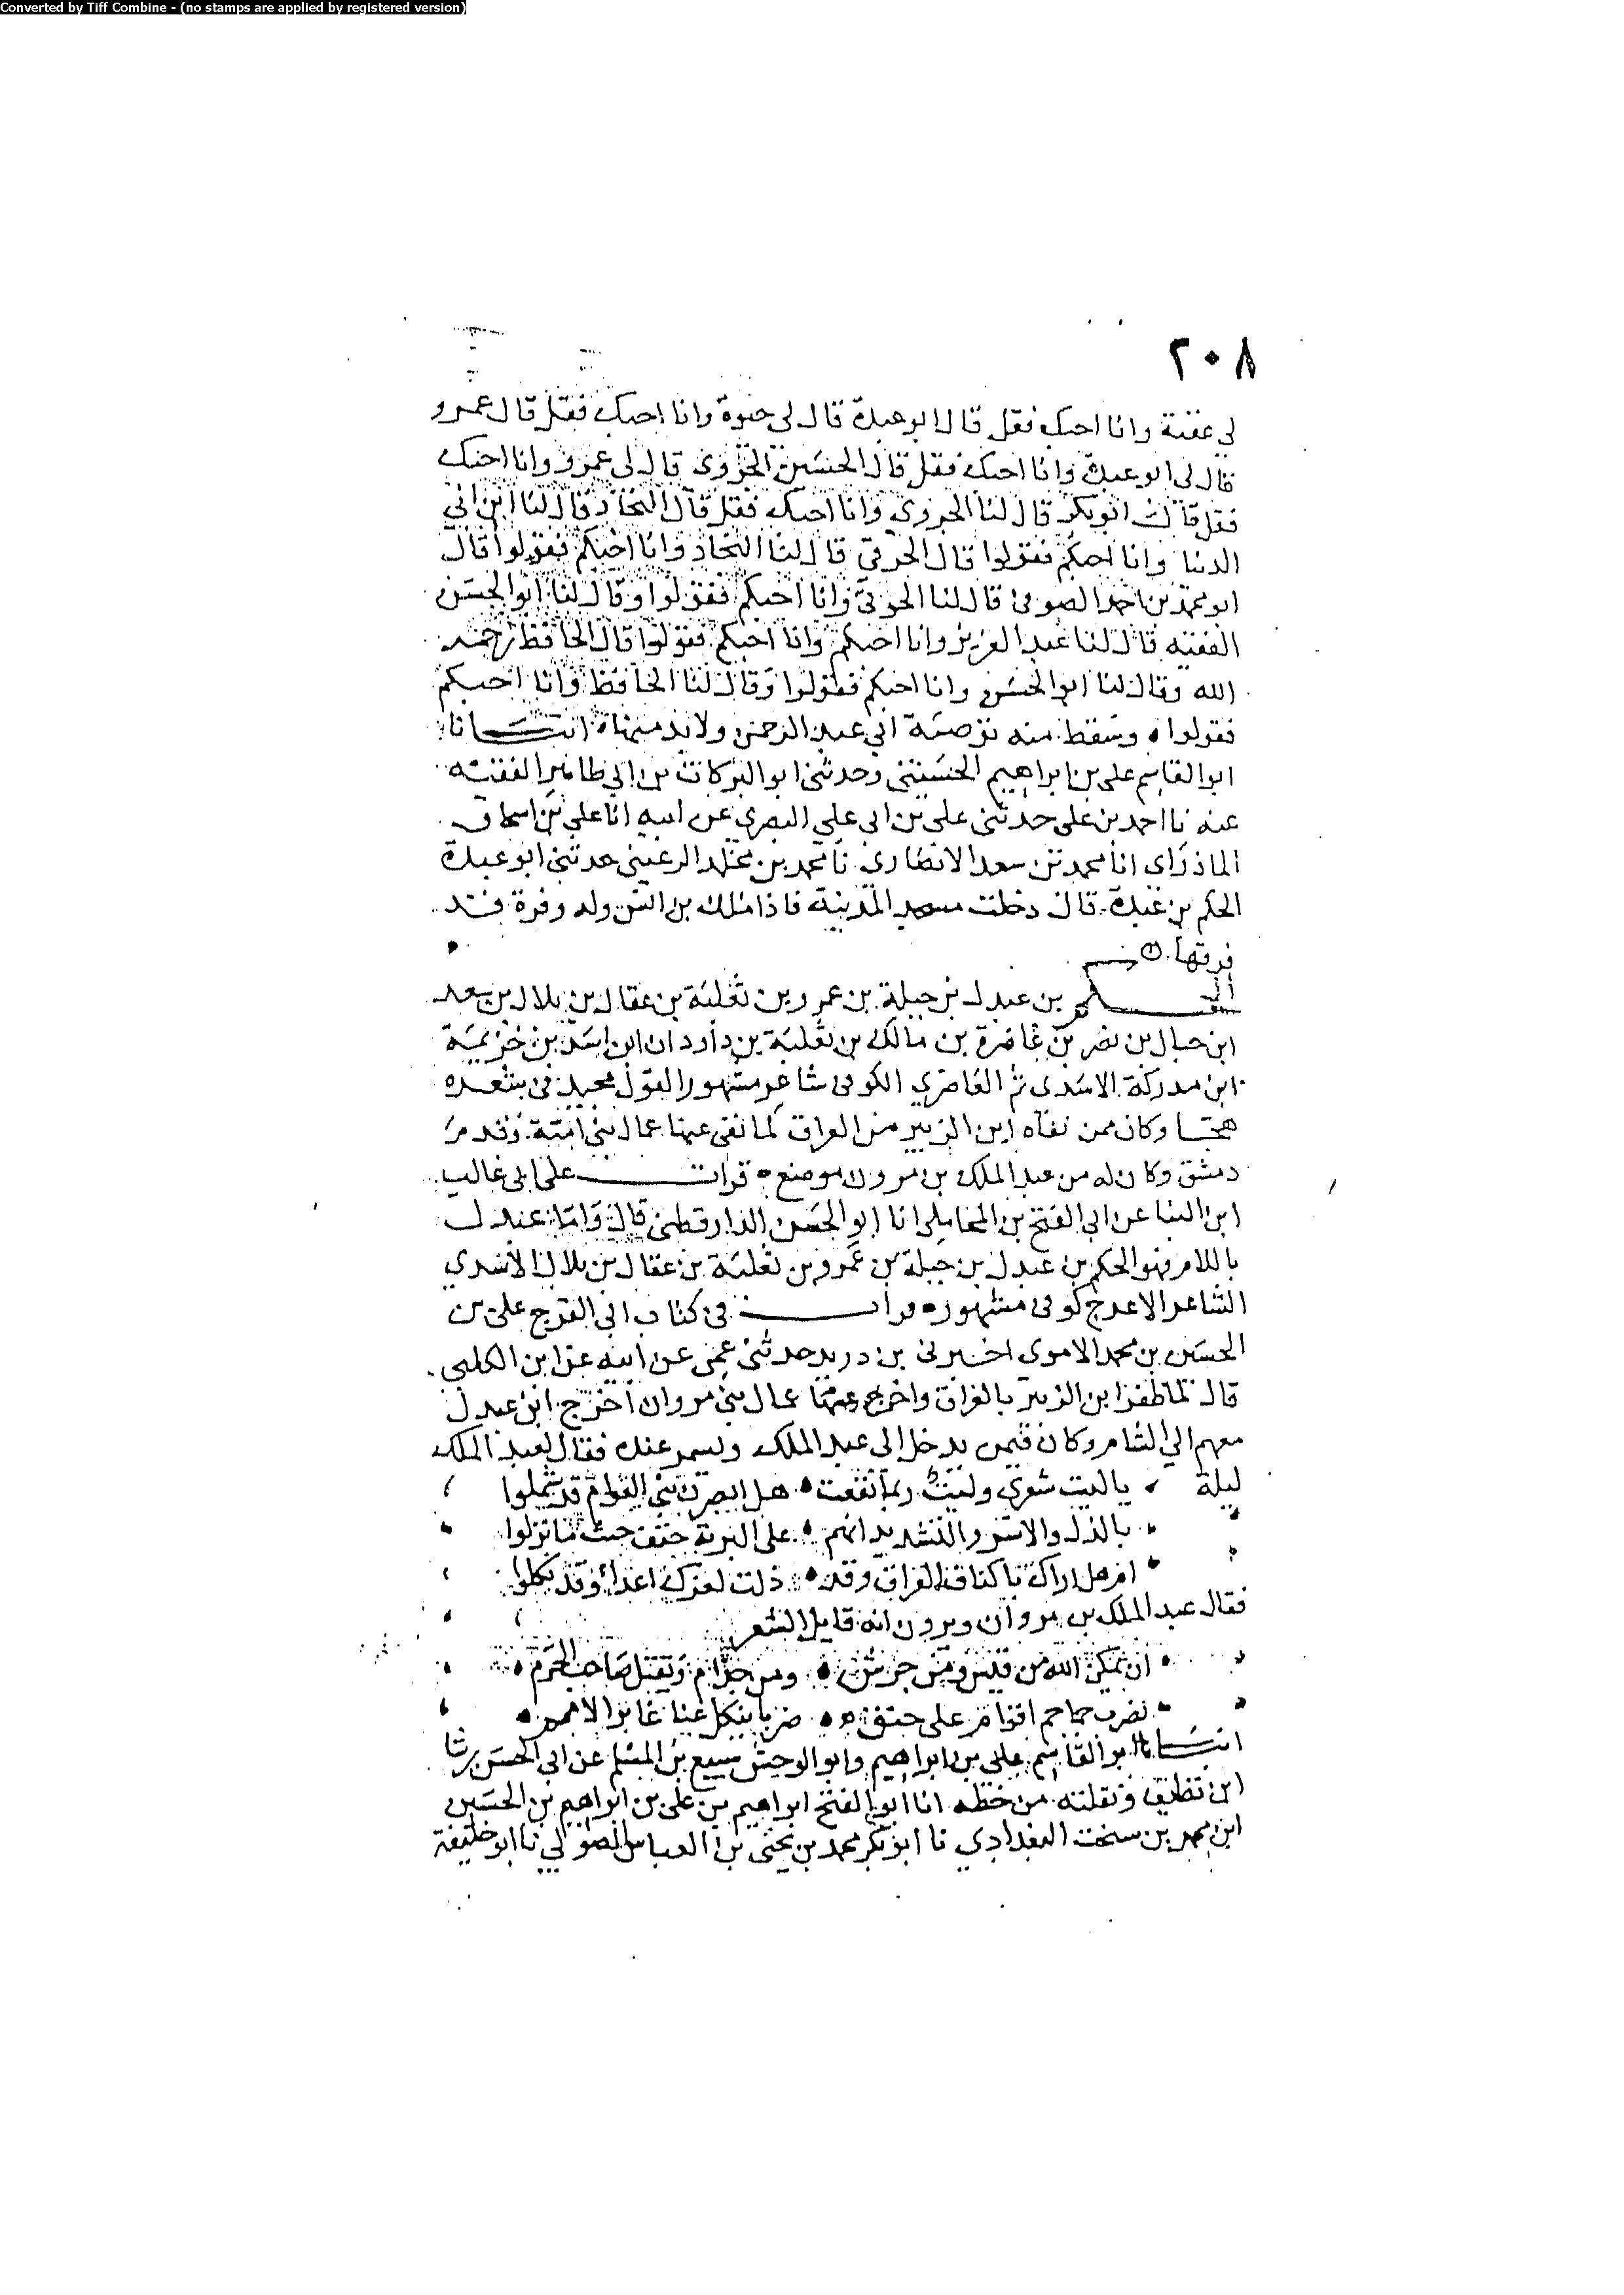 Converted by Tiff Combine - (no stamps are applied by registered version)
٢٠٨
لي عقبة وانا احبك فقل قال ابو عبدة قال لي حيوة وانا احبك فقل قال عمرو
قال لي ابو عبدة وانا احبك فقل قال الحسين الجروي قال لي عمرو وانا احبك
فقل قال ابو بكر قال لنا الجروي وانا احبك فقل قال النجاد قال لنا ابن ابي
الدنيا وانا احبكم فقولوا قال الحرفي قال لنا النجاد وانا احبكم فقولوا قال
ابو محمد بن احمد الصوفي قال لنا الحرفي وانا احبكم فقولوا وقال لنا ابو الحسن
الفقيه قال لنا عبد العزيز وانا احبكم وانا احبكم فقولوا قال الحافظ رحمه
الله وقال لنا ابو الحسن وانا احبكم فقولوا وقال لنا الحافظ وانا احبكم
فقولوا • وسقط منه توصية ابي عبد الرحمن ولا بد منها • انبانا
ابو القاسم علي بن ابراهيم الحسيني وحدثني ابو البركات بن ابي طاهر الفقيه
عنه نا احمد بن علي حدثني علي بن ابي علي البصري عن ابيه انا علي بن اسحاق
الماذرائي انا محمد بن سعد الانصاري نا محمد بن مخلد الرعيني حدثني ابو عبدة
الحكم بن عبدة قال دخلت مسجد المدينة فاذا مالك بن انس وله وفرة قد
فرقها
الحكم بن عبدل بن جبلة بن عمرو بن ثعلبة بن عقال بن بلال بن سعد
ابن حبال بن نصر بن غاضرة بن مالك بن ثعلبة بن دودان ابن اسد بن خزيمة
ابن مدركة الاسدي ثم الغاضري الكوفي شاعر مشهور القول مجيد في شعره
هجا وكان ممن نفاه ابن الزبير من العراق لما نفى عنها عمال بني امية وقدم
دمشق وكان له من عبد الملك بن مروان موضع • قرات على ابي غالب
ابن البنا عن ابي الفتح بن المحاملي انا ابو الحسن الدارقطني قال واما عبدل
باللام فهو الحكم بن عبدل بن جبلة بن عمرو بن ثعلبة بن عقال بن بلال الاسدي
الشاعر الاعرج كوفي مشهور • قرات في كتاب ابي الفرج علي بن
الحسين بن محمد الاموي اخبرني بن دريد حدثني عمي عن ابيه عن ابن الكلبي
قال لما ظفر ابن الزبير بالعراق واخرج عنها عمال بني مروان اخرج ابن عبدل
معهم الى الشام وكان فيمن يدخل الى عبد الملك ويسمر عنده فقال لعبد الملك
ليلة يا ليت شعري وليت ربما نفعت • هل ابصرن بني العوام قد شملوا
بالذل والاسر والتشريد انهم • على البرية حتف حيث ما نزلوا
ام هل اراك باكناف العراق وقد • ذلت لعزك اعداء وقد نكلوا
فقال عبد الملك بن مروان ويرون انه قايل الشعر
ان يمكن الله من قيس ومن جرش • ومن جذام ويقتل صاحب الحرم •
نضرب جماجم اقوام على حنق • ضربا ينكل عنا غابر الامم •
انبانا ابو القاسم علي بن ابراهيم وابو الوحش سبيع بن المسلم عن ابي الحسن رشا
ابن نظيف ونقلته من خطه انا ابو الفتح ابراهيم بن علي بن ابراهيم بن الحسين
ابن محمد بن سيخت البغدادي نا ابو بكر محمد بن يحيى بن العباس الصولي نا ابو خليفة